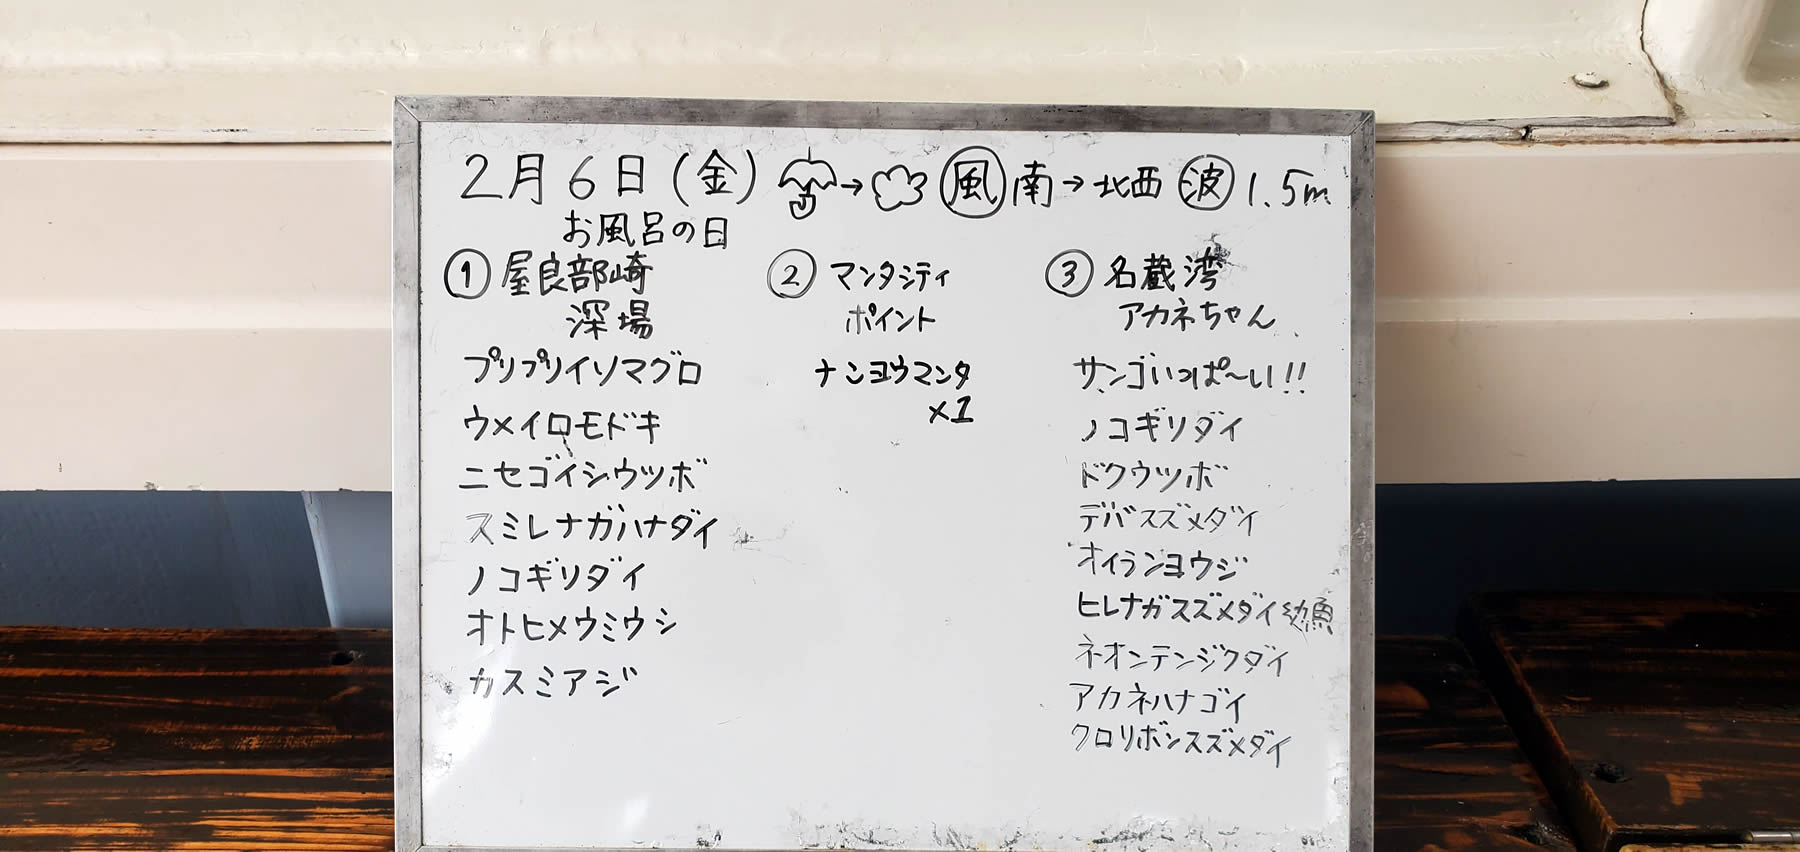 2月6日(金) → 風 南→北西 波 1.5m
お風呂の日
① 屋良部崎
深場
プリプリイソマグロ
ウメイロモドキ
ニセゴイシウツボ
スミレナガハナダイ
ノコギリダイ
オトヒメウミウシ
カスミアジ
② マンタシティ
ポイント
ナンヨウマンタ
×1
③ 名蔵湾
アカネちゃん
サンゴいっぱ〜い!!
ノコギリダイ
ドクウツボ
デバスズメダイ
オイランヨウジ
ヒレナガスズメダイ幼魚
ネオンテンジクダイ
アカネハナゴイ
クロリボンスズメダイ